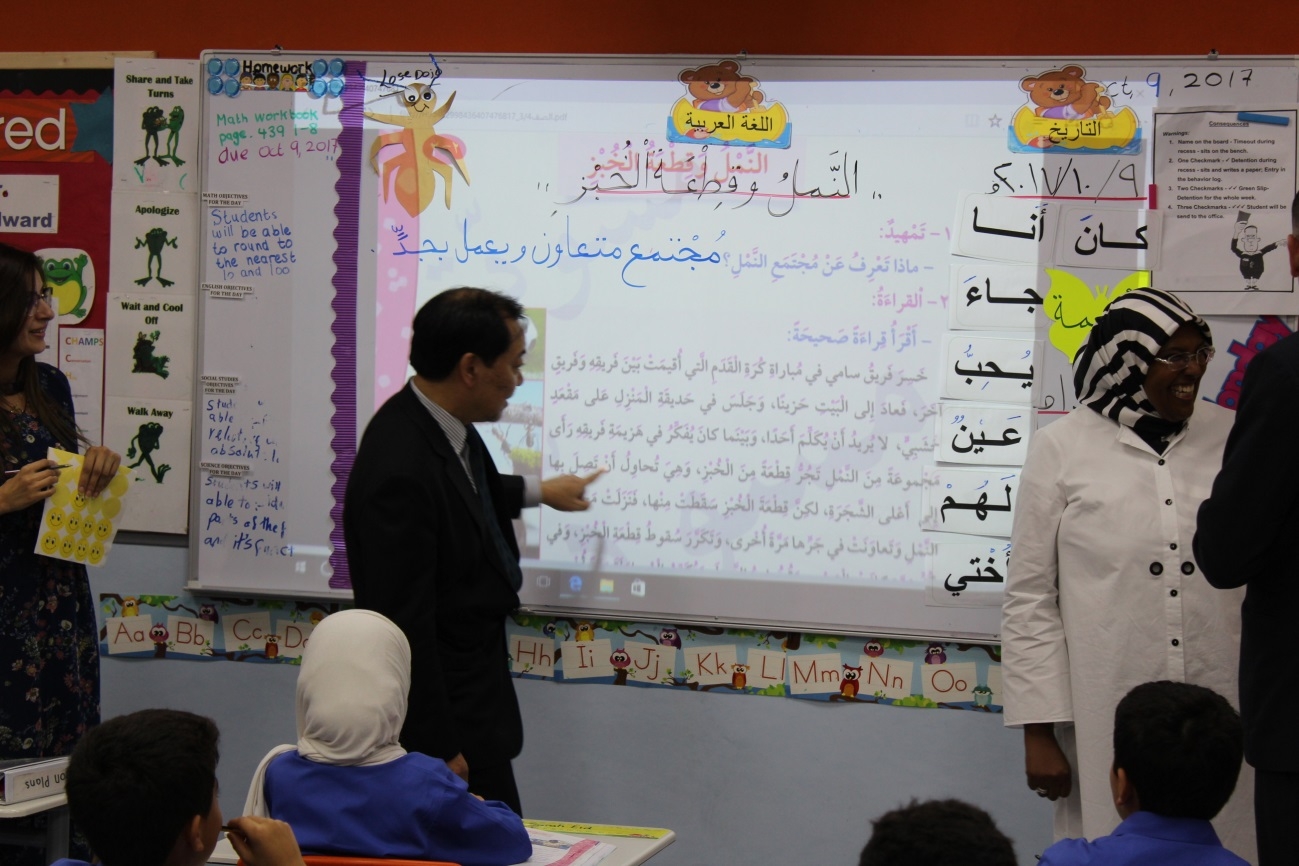 Share and Take
Turns
Apologize
Wait and Cool
Off
Walk Away
red
dward
CHAMPS
Homework
Math workbook
page. 439 1-8
due Oct 9, 2017
MATH OBJECTIVES
FOR THE DAY
Students
will be able
to round to
the nearest
10 and 100
ENGLISH OBJECTIVES
FOR THE DAY
SOCIAL STUDIES
OBJECTIVES
FOR THE DAY
able
SCIENCE OBJECTIVES
FOR THE DAY
able to
and it's
Lose Dojo
اللغة العربية
التاريخ
ct, 9, 2017
٢٠١٧/١٠/٩
النَّمْلُ وَقِطْعَةُ الْخُبْزِ
" النَّملُ وقِطعَةُ الخُبْزِ "
١- تَمْهيدٌ:
- ماذا تَعْرِفُ عَنْ مُجْتَمَعِ النَّمْلِ؟
مُجْتمع متعاون ويعمل بجدٍّ.
٢- الْقراءَةُ:
- أَقْرَأُ قِراءَةً صَحيحَةً:
خَسِرَ فَريقُ سامي في مُباراةِ كُرَةِ الْقَدَمِ الَّتي أُقيمَتْ بَيْنَ فَريقِهِ وَفَريقٍ
آخَرَ، فَعادَ إلى الْبَيْتِ حَزينًا، وَجَلَسَ في حَديقَةِ الْمَنْزِلِ عَلى مَقْعَدٍ
خَشَبِيٍّ، لا يُريدُ أَنْ يُكَلِّمَ أَحَدًا، وَبَيْنَما كانَ يُفَكِّرُ في هَزيمَةِ فَريقِهِ رَأَى
مَجْموعَةً مِنَ النَّمْلِ تَجُرُّ قِطْعَةً مِنَ الْخُبْزِ، وَهِيَ تُحاوِلُ أَنْ تَصِلَ بِها
إِلى أَعْلى الشَّجَرَةِ، لكِنَّ قِطْعَةَ الْخُبْزِ سَقَطَتْ مِنْها، فَنَزَلَتْ
النَّمْلِ وَتَعاوَنَتْ في جَرِّها مَرَّةً أُخْرى، وَتَكَرَّرَ سُقوطُ قِطْعَةِ الْخُبْزِ، وَفي
أَنا
كانَ
جاءَ
يُحِبُّ
عَيْنٌ
لَهُمْ
أُخْتي
Consequences
Warnings:
1. Name on the board - Timeout during
recess - sits on the bench.
2. One Checkmark - ✓ Detention during
recess - sits and writes a paper; Entry in
the behavior log.
3. Two Checkmarks - ✓✓ Green Slip-
Detention for the whole week.
4. Three Checkmarks - ✓✓✓ Student will be
send to the office.
Aa Bb Cc Dd Hh Ii Jj Kk Ll Mm Nn Oo
on Plans